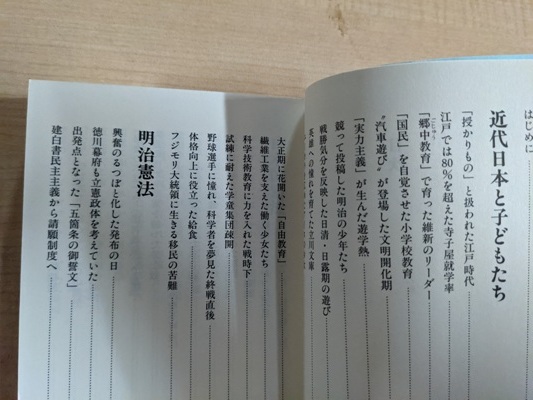 はじめに
近代日本と子どもたち
「授かりもの」と扱われた江戸時代
江戸では80％を超えた寺子屋就学率
「郷中教育」で育った維新のリーダー
「国民」を自覚させた小学校教育
“汽車遊び”が登場した文明開化期
「実力主義」が生んだ遊学熱
競って投稿した明治の少年たち
戦勝気分を反映した日清・日露期の遊び
英雄への憧れを育てた立川文庫
大正期に花開いた「自由教育」
繊維工業を支えた働く少女たち
科学技術教育に力を入れた戦時下
試練に耐えた学童集団疎開
野球選手に憧れ、科学者を夢見た終戦直後
体格向上に役立った給食
フジモリ大統領に生きる移民の苦難
明治憲法
興奮のるつぼと化した発布の日
徳川幕府も立憲政体を考えていた
出発点となった「五箇条の御誓文」
建白書民主主義から請願制度へ